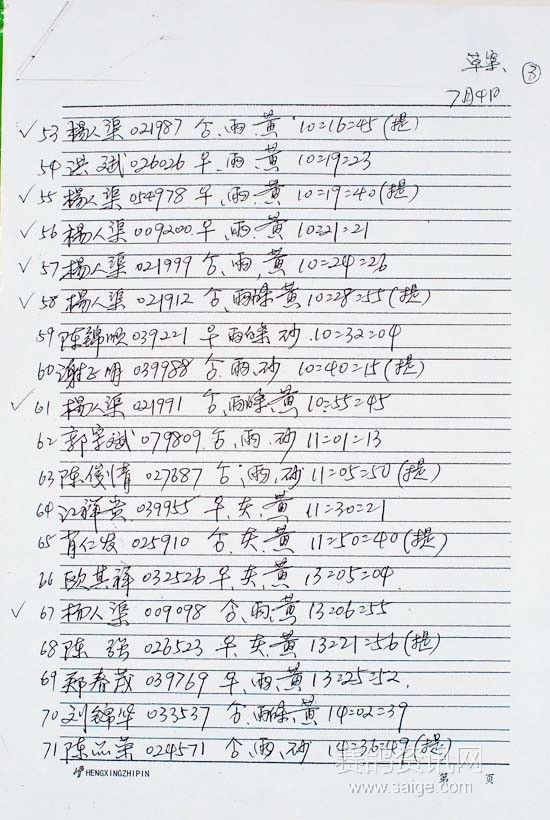 草案 ③
7月4日
✓ 53 杨人渠 021987 台、雨、黄 10=16=45 (提)
54 洪斌 026026 早、雨、黄 10=19=23
✓ 55 杨人渠 054978 早、雨、黄 10=19=40 (提)
✓ 56 杨人渠 009200 早、雨、黄 10=21=21
✓ 57 杨人渠 021999 台、雨、黄 10=24=26
✓ 58 杨人渠 021912 台、雨條、黄 10=28=55 (提)
59 陈锦顺 039221 早 雨條 砂 10=32=04
60 谢正明 039988 台、雨、砂 10=40=15 (提)
✓ 61 杨人渠 021991 台、雨條、黄 10=55=45
62 郭宗斌 079809 台、雨、砂 11=01=13
63 陈俊清 027687 台、雨、砂 11=05=50 (提)
64 江祥贵 039955 早、灰、黄 11=30=21
65 肖仁发 025910 台、灰、黄 11=50=40 (提)
66 欧其祥 032526 早、灰、黄 13=05=04
✓ 67 杨人渠 009098 台、雨、黄 13=06=55
68 陈强 026523 早、灰、黄 13=21=56 (提)
69 郑春茂 039769 早、雨、黄 13=25=52
70 刘锦华 033537 台、雨條、黄 14=02=39
71 陈荣 024571 台、雨、砂 14=36=49 (提)
HENGXINGZHIPIN 第 页
赛鸽资讯网
www.saige.com